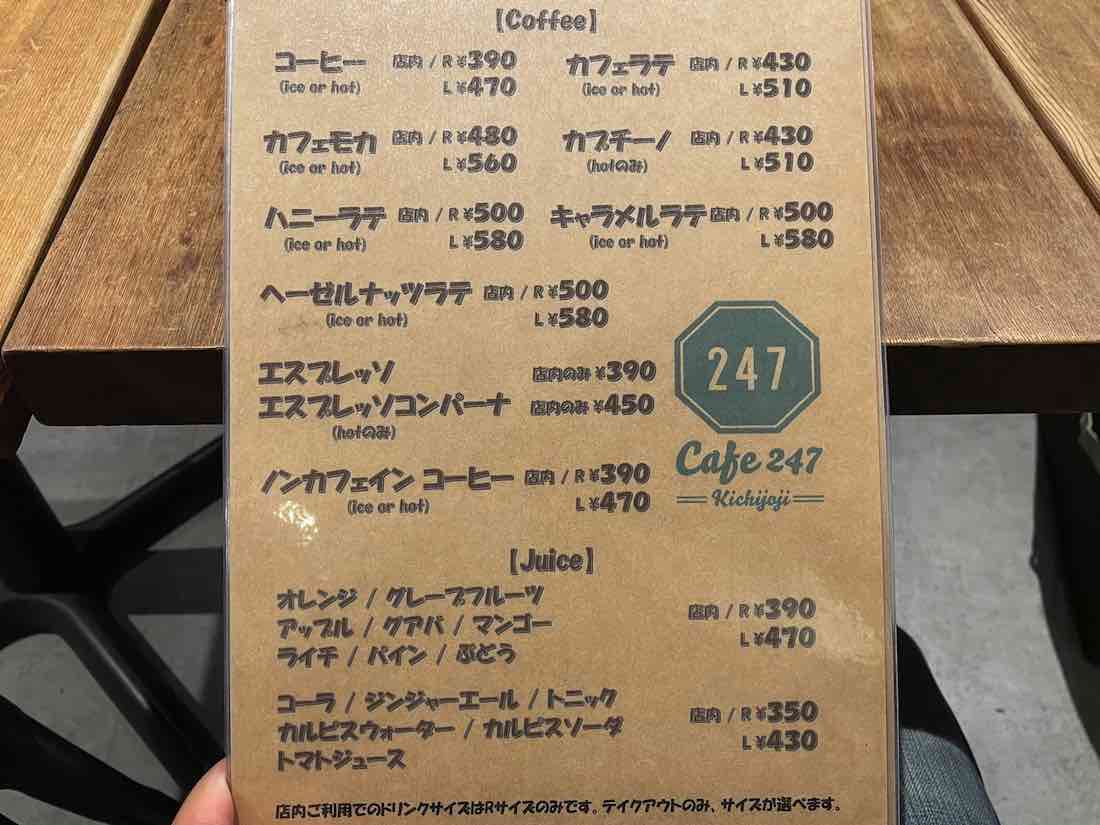 【Coffee】
コーヒー 店内 / R ¥390
(ice or hot) L ¥470
カフェラテ 店内 / R ¥430
(ice or hot) L ¥510
カフェモカ 店内 / R ¥480
(ice or hot) L ¥560
カプチーノ 店内 / R ¥430
(hotのみ) L ¥510
ハニーラテ 店内 / R ¥500
(ice or hot) L ¥580
キャラメルラテ 店内 / R ¥500
(ice or hot) L ¥580
ヘーゼルナッツラテ 店内 / R ¥500
(ice or hot) L ¥580
エスプレッソ 店内のみ ¥390
エスプレッソコンパーナ 店内のみ ¥450
(hotのみ)
247
Cafe 247
Kichijoji
ノンカフェイン コーヒー 店内 / R ¥390
(ice or hot) L ¥470
【Juice】
オレンジ / グレープフルーツ
アップル / グアバ / マンゴー
ライチ / パイン / ぶどう
店内 / R ¥390
L ¥470
コーラ / ジンジャーエール / トニック
カルピスウォーター / カルピスソーダ
トマトジュース
店内 / R ¥350
L ¥430
店内ご利用でのドリンクサイズはRサイズのみです。テイクアウトのみ、サイズが選べます。